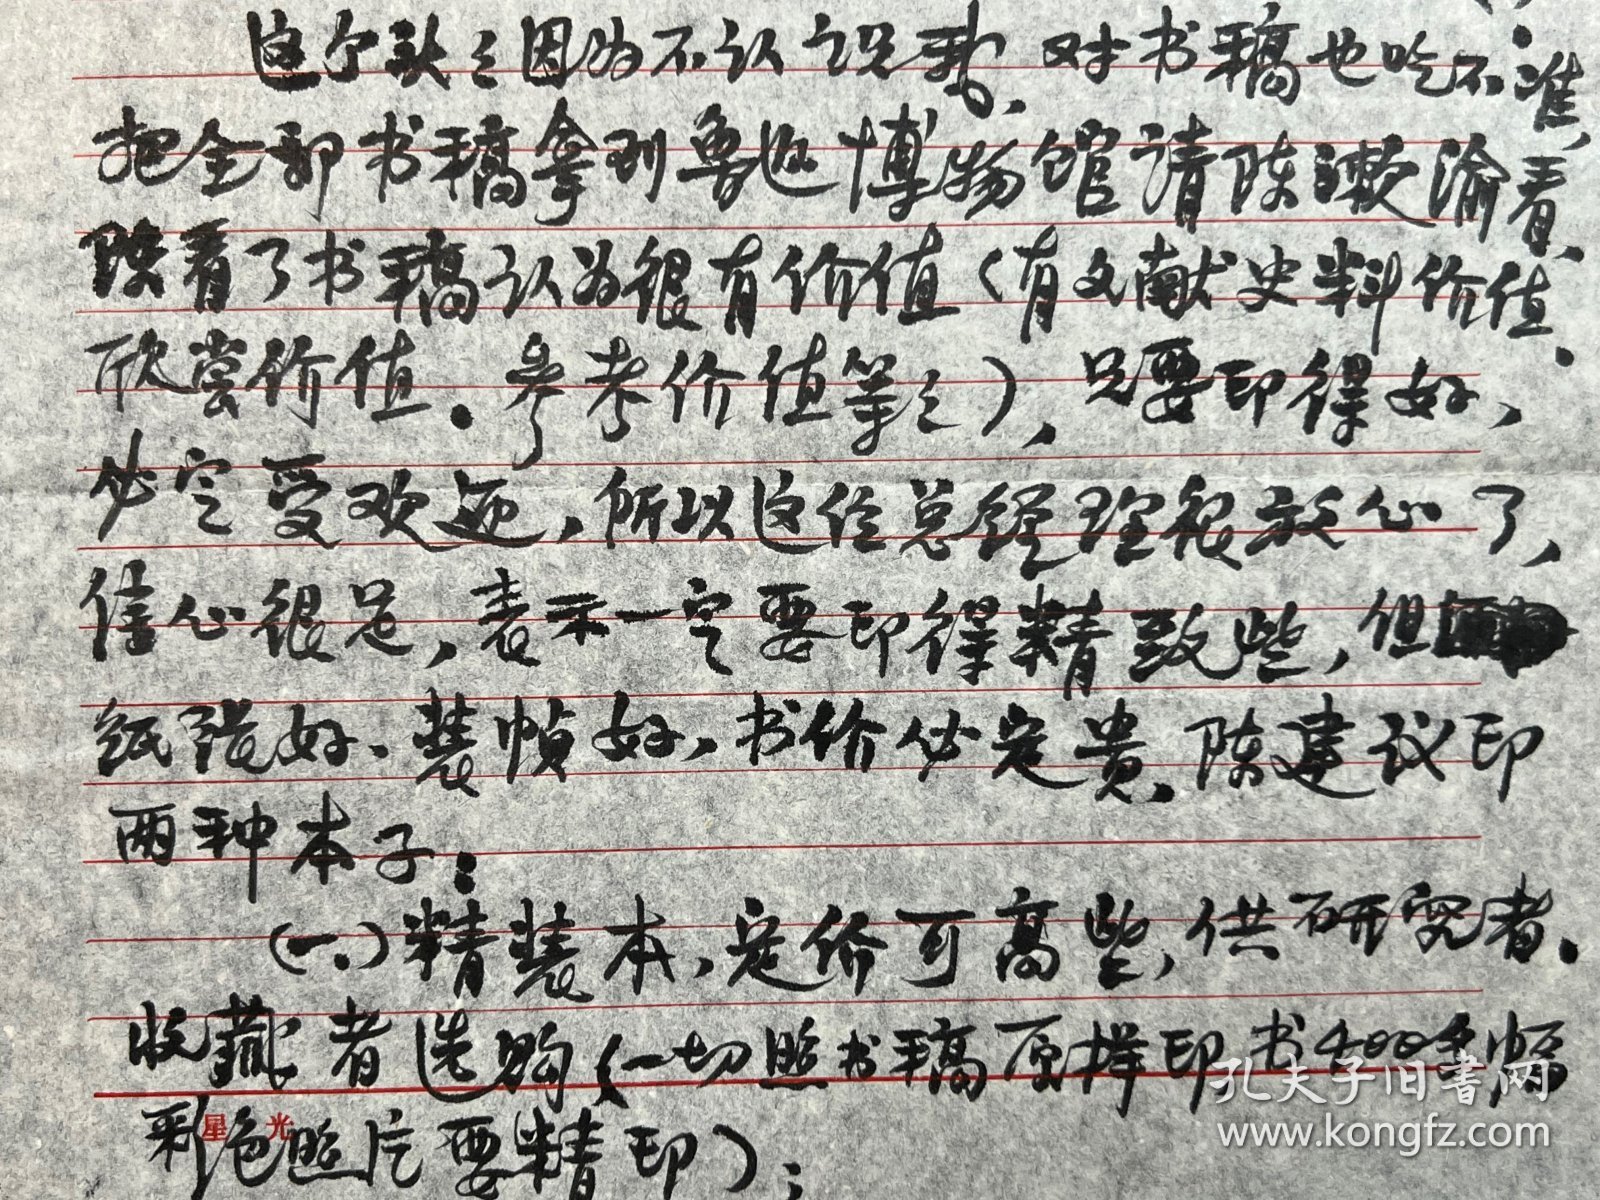 这个头头因为不认识我，对书稿也吃不准，
把全部书稿拿到鲁迅博物馆请陈漱渝看、
陈看了书稿认为很有价值（有文献史料价值、
欣赏价值、参考价值等之），只要印得好，
必定受欢迎，所以这位总经理很放心了，
信心很足，表示一定要印得精致些，但
纸张好、装帧好，书价必定贵、陈建议印
两种本子：
（一）精装本、定价可高些，供研究者、
收藏者选购（一切照书稿原样印书400多幅
彩色照片要精印）；
星光
孔夫子旧书网
www.kongfz.com